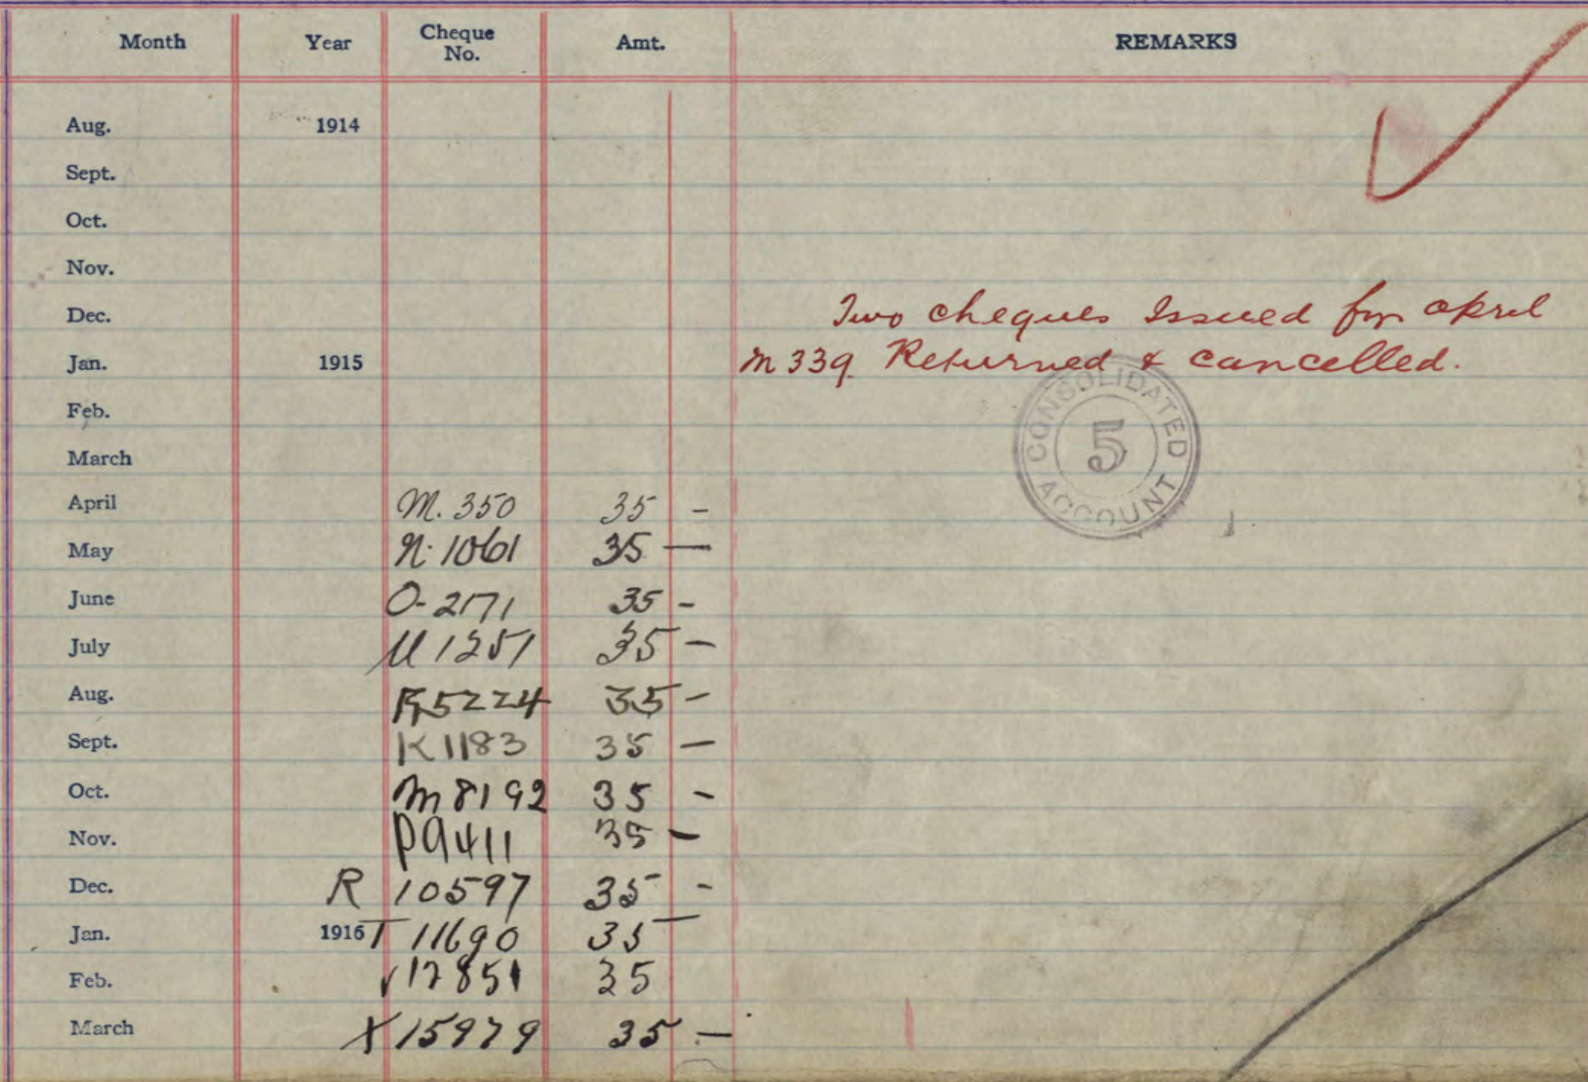 Month Year Cheque No. Amt. REMARKS
Aug. 1914
Sept.
Oct.
Nov.
Dec. Two cheques Issued for april
Jan. 1915 M 339. Returned & cancelled.
Feb.
March
CONSOLIDATED 5 ACCOUNT
April M. 350 35 -
May N. 1061 35 —
June O- 2171 35 -
July U 1251 35 -
Aug. 5224 35 -
Sept. K 1183 35 -
Oct. M 8192 35 -
Nov. P9411 35 -
Dec. R 10597 35 -
Jan. 1916 T 11690 35 -
Feb. 35
March X 15979 35 -